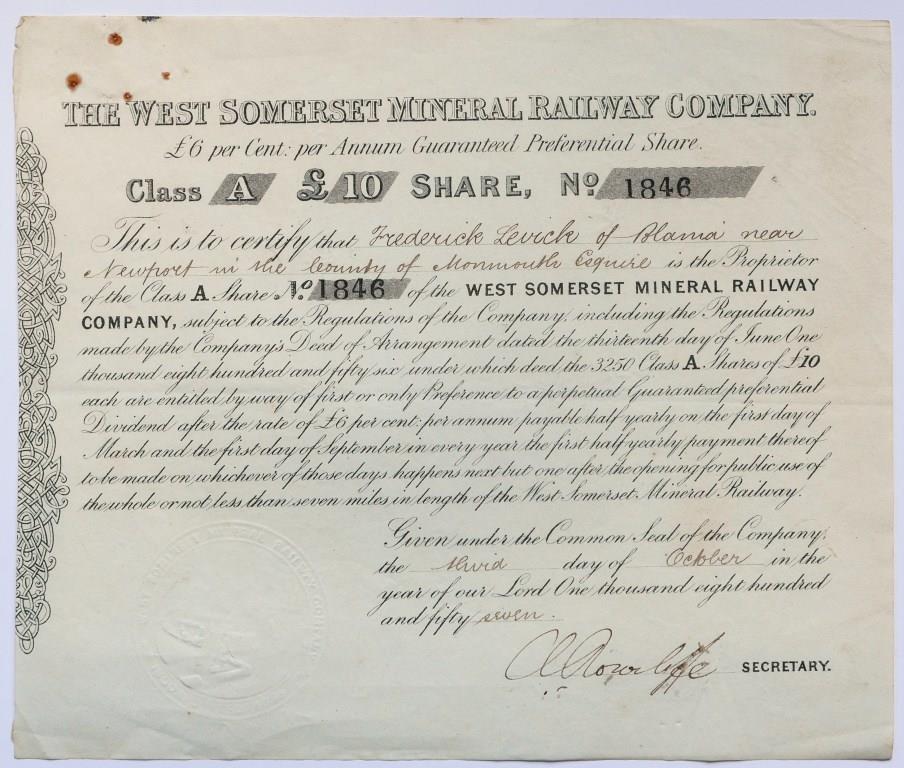 THE WEST SOMERSET MINERAL RAILWAY COMPANY.
£6 per Cent: per Annum Guaranteed Preferential Share.
Class A £10 SHARE, No 1846
This is to certify that Frederick Levick of Blaina near
Newport in the County of Monmouth Esquire is the Proprietor
of the Class A Share No 1846 of the WEST SOMERSET MINERAL RAILWAY
COMPANY, subject to the Regulations of the Company, including the Regulations
made by the Company's Deed of Arrangement dated the thirteenth day of June One
thousand eight hundred and fifty six under which deed the 3250 Class A Shares of £10
each are entitled by way of first or only Preference to a perpetual Guaranteed preferential
Dividend after the rate of £6 per cent: per annum payable half yearly on the first day of
March and the first day of September in every year the first half yearly payment thereof
to be made on whichever of those days happens next but one after the opening for public use of
the whole or not less than seven miles in length of the West Somerset Mineral Railway.
Given under the Common Seal of the Company,
the third day of October in the
year of our Lord One thousand eight hundred
and fifty seven.
Rowcliffe SECRETARY.